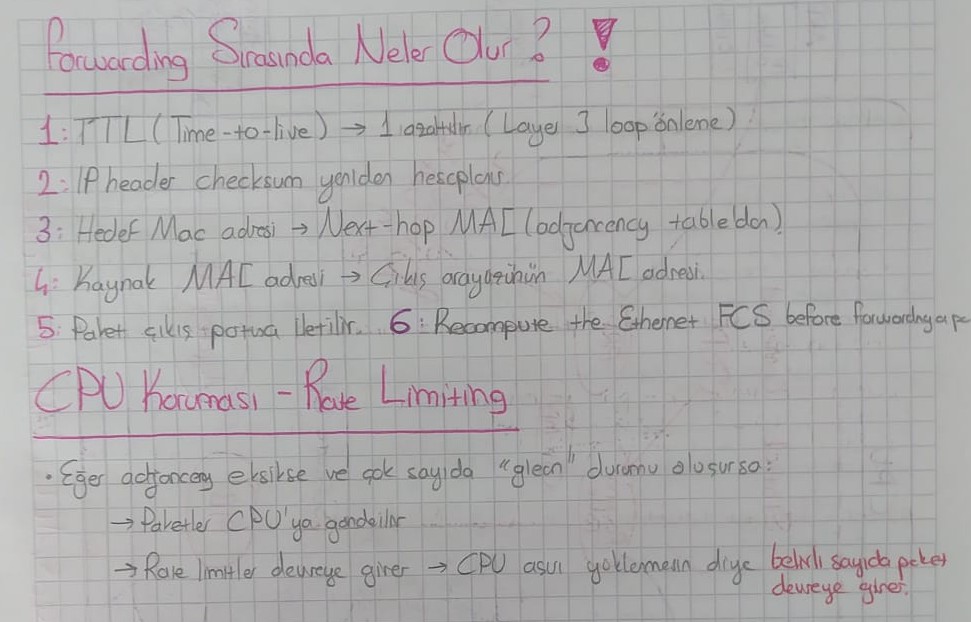 Forwarding Sırasında Neler Olur? !
1: TTL (Time-to-live) → 1 azaltılır (Layer 3 loop önleme)
2: IP header checksum yeniden hesaplanır.
3: Hedef Mac adresi → Next-hop MAC (adjancency table'dan)
4: Kaynak MAC adresi → Çıkış arayüzünün MAC adresi.
5: Paket çıkış portuna iletilir. 6: Recompute the Ethernet FCS before forwardng a pc
CPU Koruması - Rate Limiting
• Eğer adjancey eksikse ve çok sayıda "glean" durumu oluşursa:
→ Paketler CPU'ya gönderilir
→ Rate limitler devreye girer → CPU aşırı yüklenmesin diye belirli sayıda paket
devreye girer.